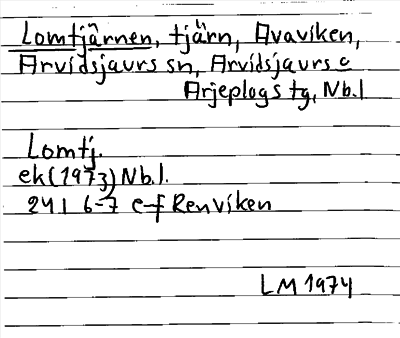 Lomtjärnen, tjärn, Avaviken,
Arvidsjaurs sn, Arvidsjaurs o
Arjeplogs tg, Nb.l
Lomtj.
ek(1973)Nb.l.
24I 6-7 e-f Renviken
LM 1974